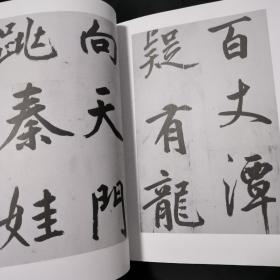 百丈潭
疑有龍
向天門
跳秦娃